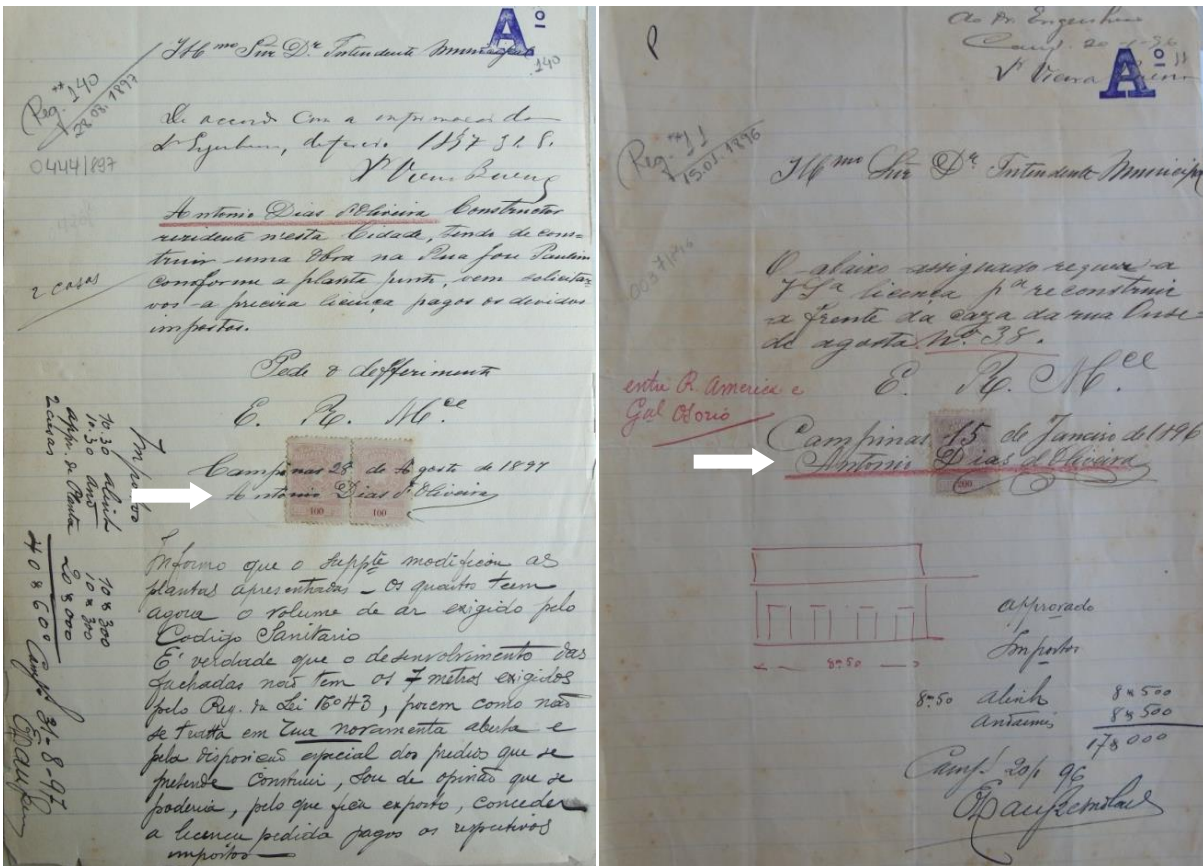 A 10
Illmo Snr Dr Intendente Municipal
140
Reg. 140
28.08.1897
0444/897
De accordo com a informação do
dr Engenheiro, defiro. 1897 31.8.
Vr Vieira Bueno
Antonio Dias d'Oliveira Constructor
rezidente n'esta Cidade, tendo de cons=
truir uma Obra na Rua Jose Paulino
comforme a planta junta, vem solicitar
vos a preciza licença pagos os devidos
impostos.
2 casas
Pede o defferimento
E. R. M.ce
Campinas 28 de Agosto de 1897
Antonio Dias d'Oliveira
100 100
Impostos
10.30 alinh 10$300
10.30 and 10$300
app. da Planta 20$000
2 casas
40$600
Camps 31-8-97
Informo que o suppte modificou as
plantas apresentadas – Os quartos teem
agora o volume de ar exigido pelo
Codigo Sanitario
E' verdade que o desenvolvimento das
fachadas não tem os 7 metros exigidos
pelo Reg. da Lei nº 43, porem como não
se tratta em rua novamente aberta e
pela disposição especial dos predios que se
pretende construir, sou de opinão que se
poderia, pelo que fica exposto, conceder
a licença pedida pagos os respectivos
impostos
P
Ao Dr. Engenheiro
Camp. 20-1-96
Vr Vieira Bueno
A 10
Reg. 11
15.01.1896
0037/896
Illmo Snr Dr Intendente Municipal
O abaixo assignado requer a
V Sª licença pª reconstruir
a frente da caza da rua Onse
de agosto Nº 38.
entre R. America e
Gal Osorio
E. R. M.ce
Campinas 15 de Janeiro de 1896
Antonio Dias d'Oliveira
200
8m50
approvado
Impostos
8m50 alinh 8$500
Andaimes 8$500
17$000
Camps 20/1 96